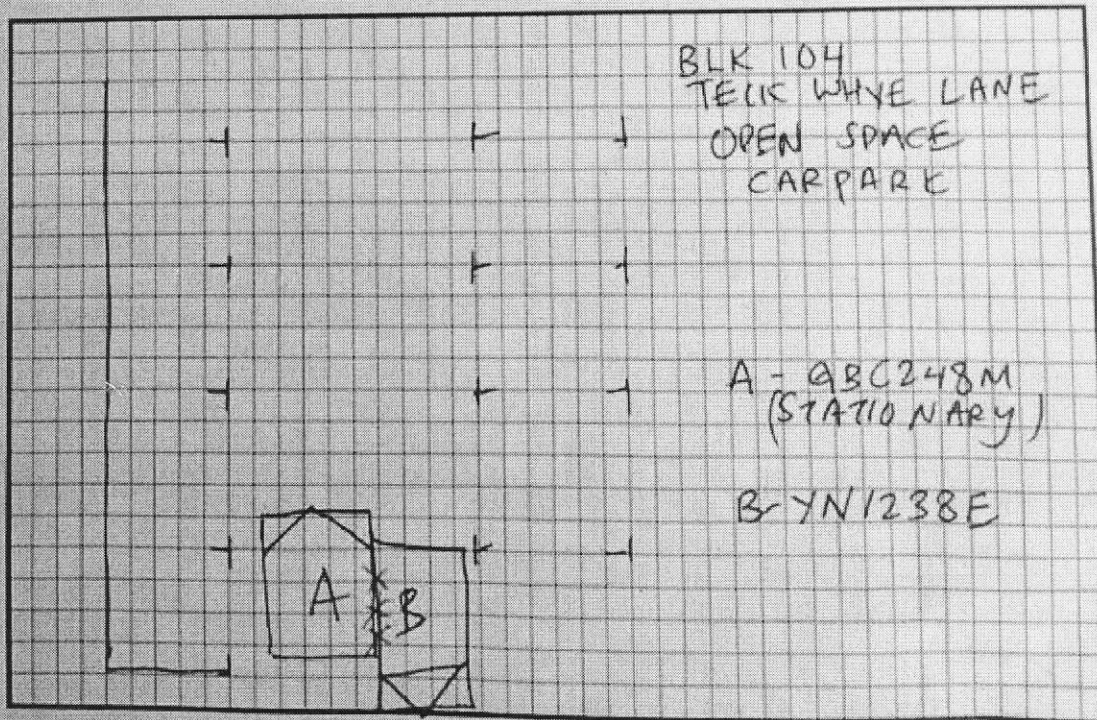 BLK 104
TECK WHYE LANE
OPEN SPACE
CARPARK
A - GBC248M
(STATIONARY)
B - YN1238E
A
B